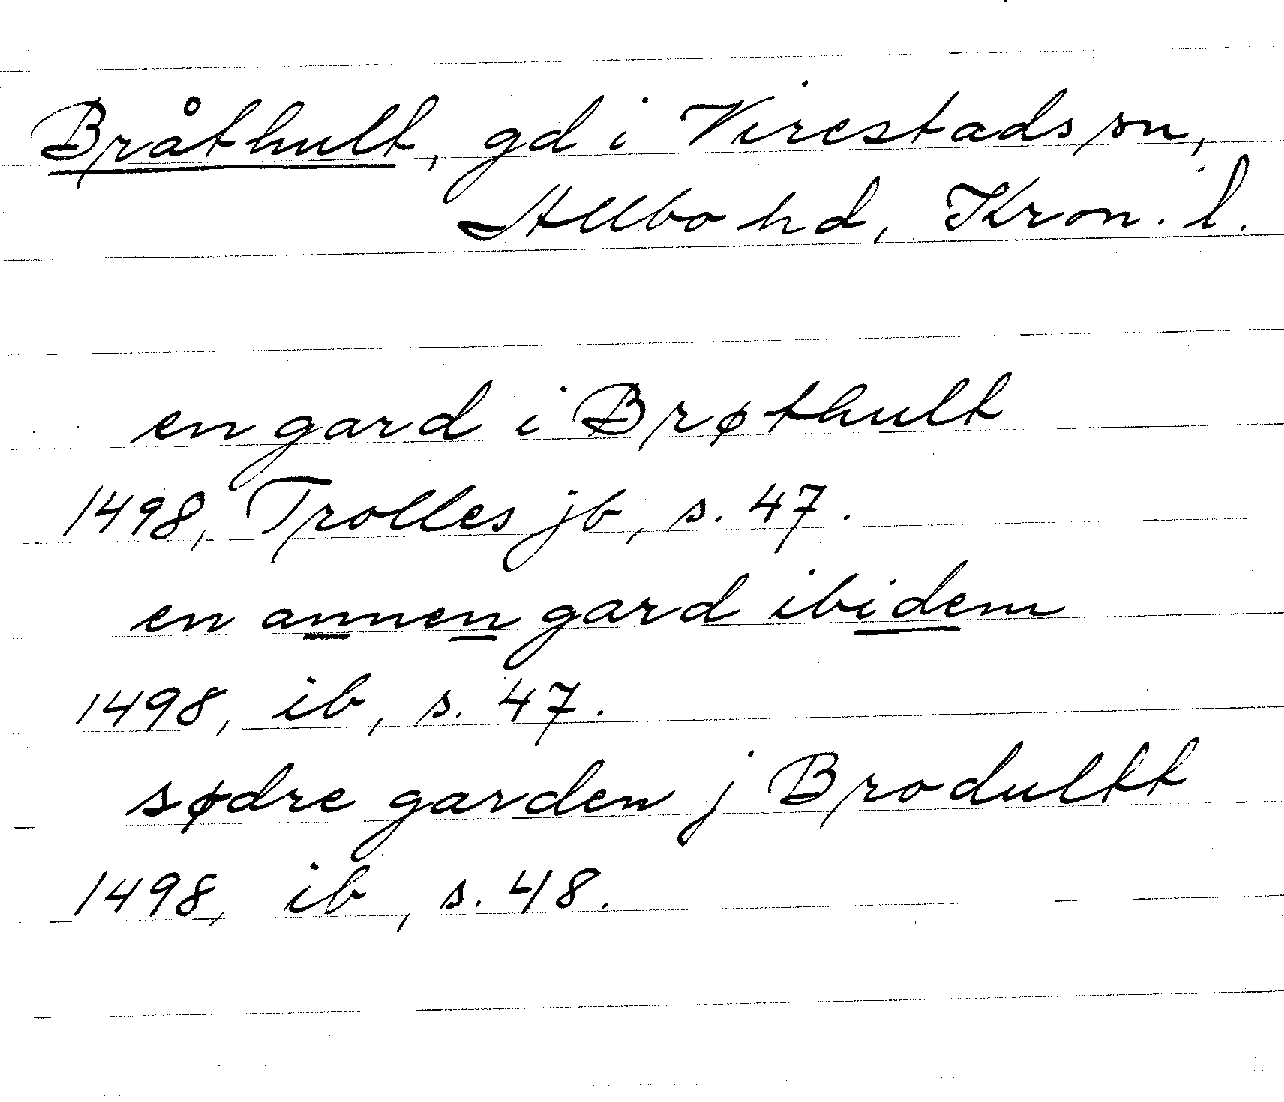 Bråthult, gd i Virestads sn,
Allbo hd, Kron. l.
en gard i Brøthult
1498, Trolles jb, s. 47.
en annen gard ibidem
1498, ib, s. 47.
sødre garden j Brodultt
1498, ib, s. 48.